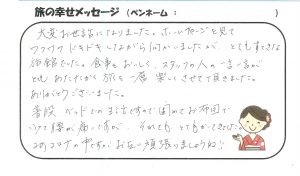 旅の幸せメッセージ (ペンネーム : )
大変お世話になりました。ホームページを見て
ワクワクドキドキしながら伺いましたが、とてもすてきな
旅館でした。食事もおいしく、スタッフの人の一言一言が
とてもあたたかく旅を一層楽しくさせて頂きました。
ありがとうございました。
普段ベッドでの生活ですので固めのお布団で
腰が痛いですが、それでもとても
コロナの中ですがお互い頑張りましょうね!